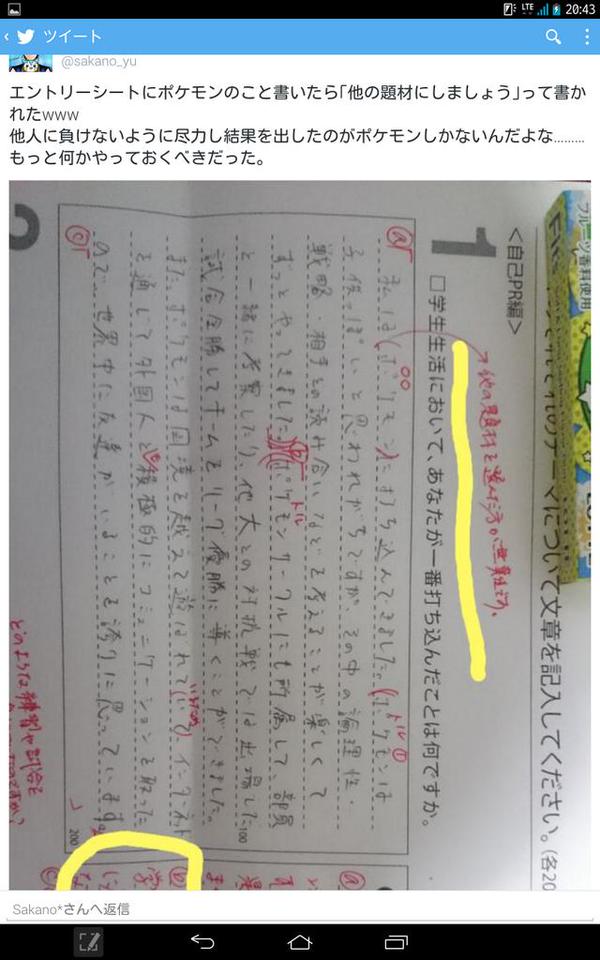 20:43
ツイート
@sakano_yu
エントリーシートにポケモンのこと書いたら｢他の題材にしましょう｣って書か
れたwww
他人に負けないように尽力し結果を出したのがポケモンしかないんだよな………
もっと何かやっておくべきだった。
フルーツ香料使用
れのテーマについて文章を記入してください。(各20
<自己PR編>
1
□学生生活において、あなたが一番打ち込んだことは何ですか。
他の題材を選んだ方が無難です。
私は(ポケモン)に打ち込んできました。(ポケモンは
子供っぽいと思われがちですが、その中の論理性・
戦略・相手との読み合いなどを考えることが楽しくて
ずっとやってきました。ポケモンサークルにも所属して、部員
と一緒に考察したり、他大との対抗戦では出場した
100
試合全勝してチームをリーグ優勝に導くことができました。
またポケモンは国境を越えて遊ばれていて、インターネット
を通して外国人と積極的にコミュニケーションを取った
ので世界中に友達がいることを誇りに思っています。
200
どのような練習や試合を
2
Sakano*さんへ返信